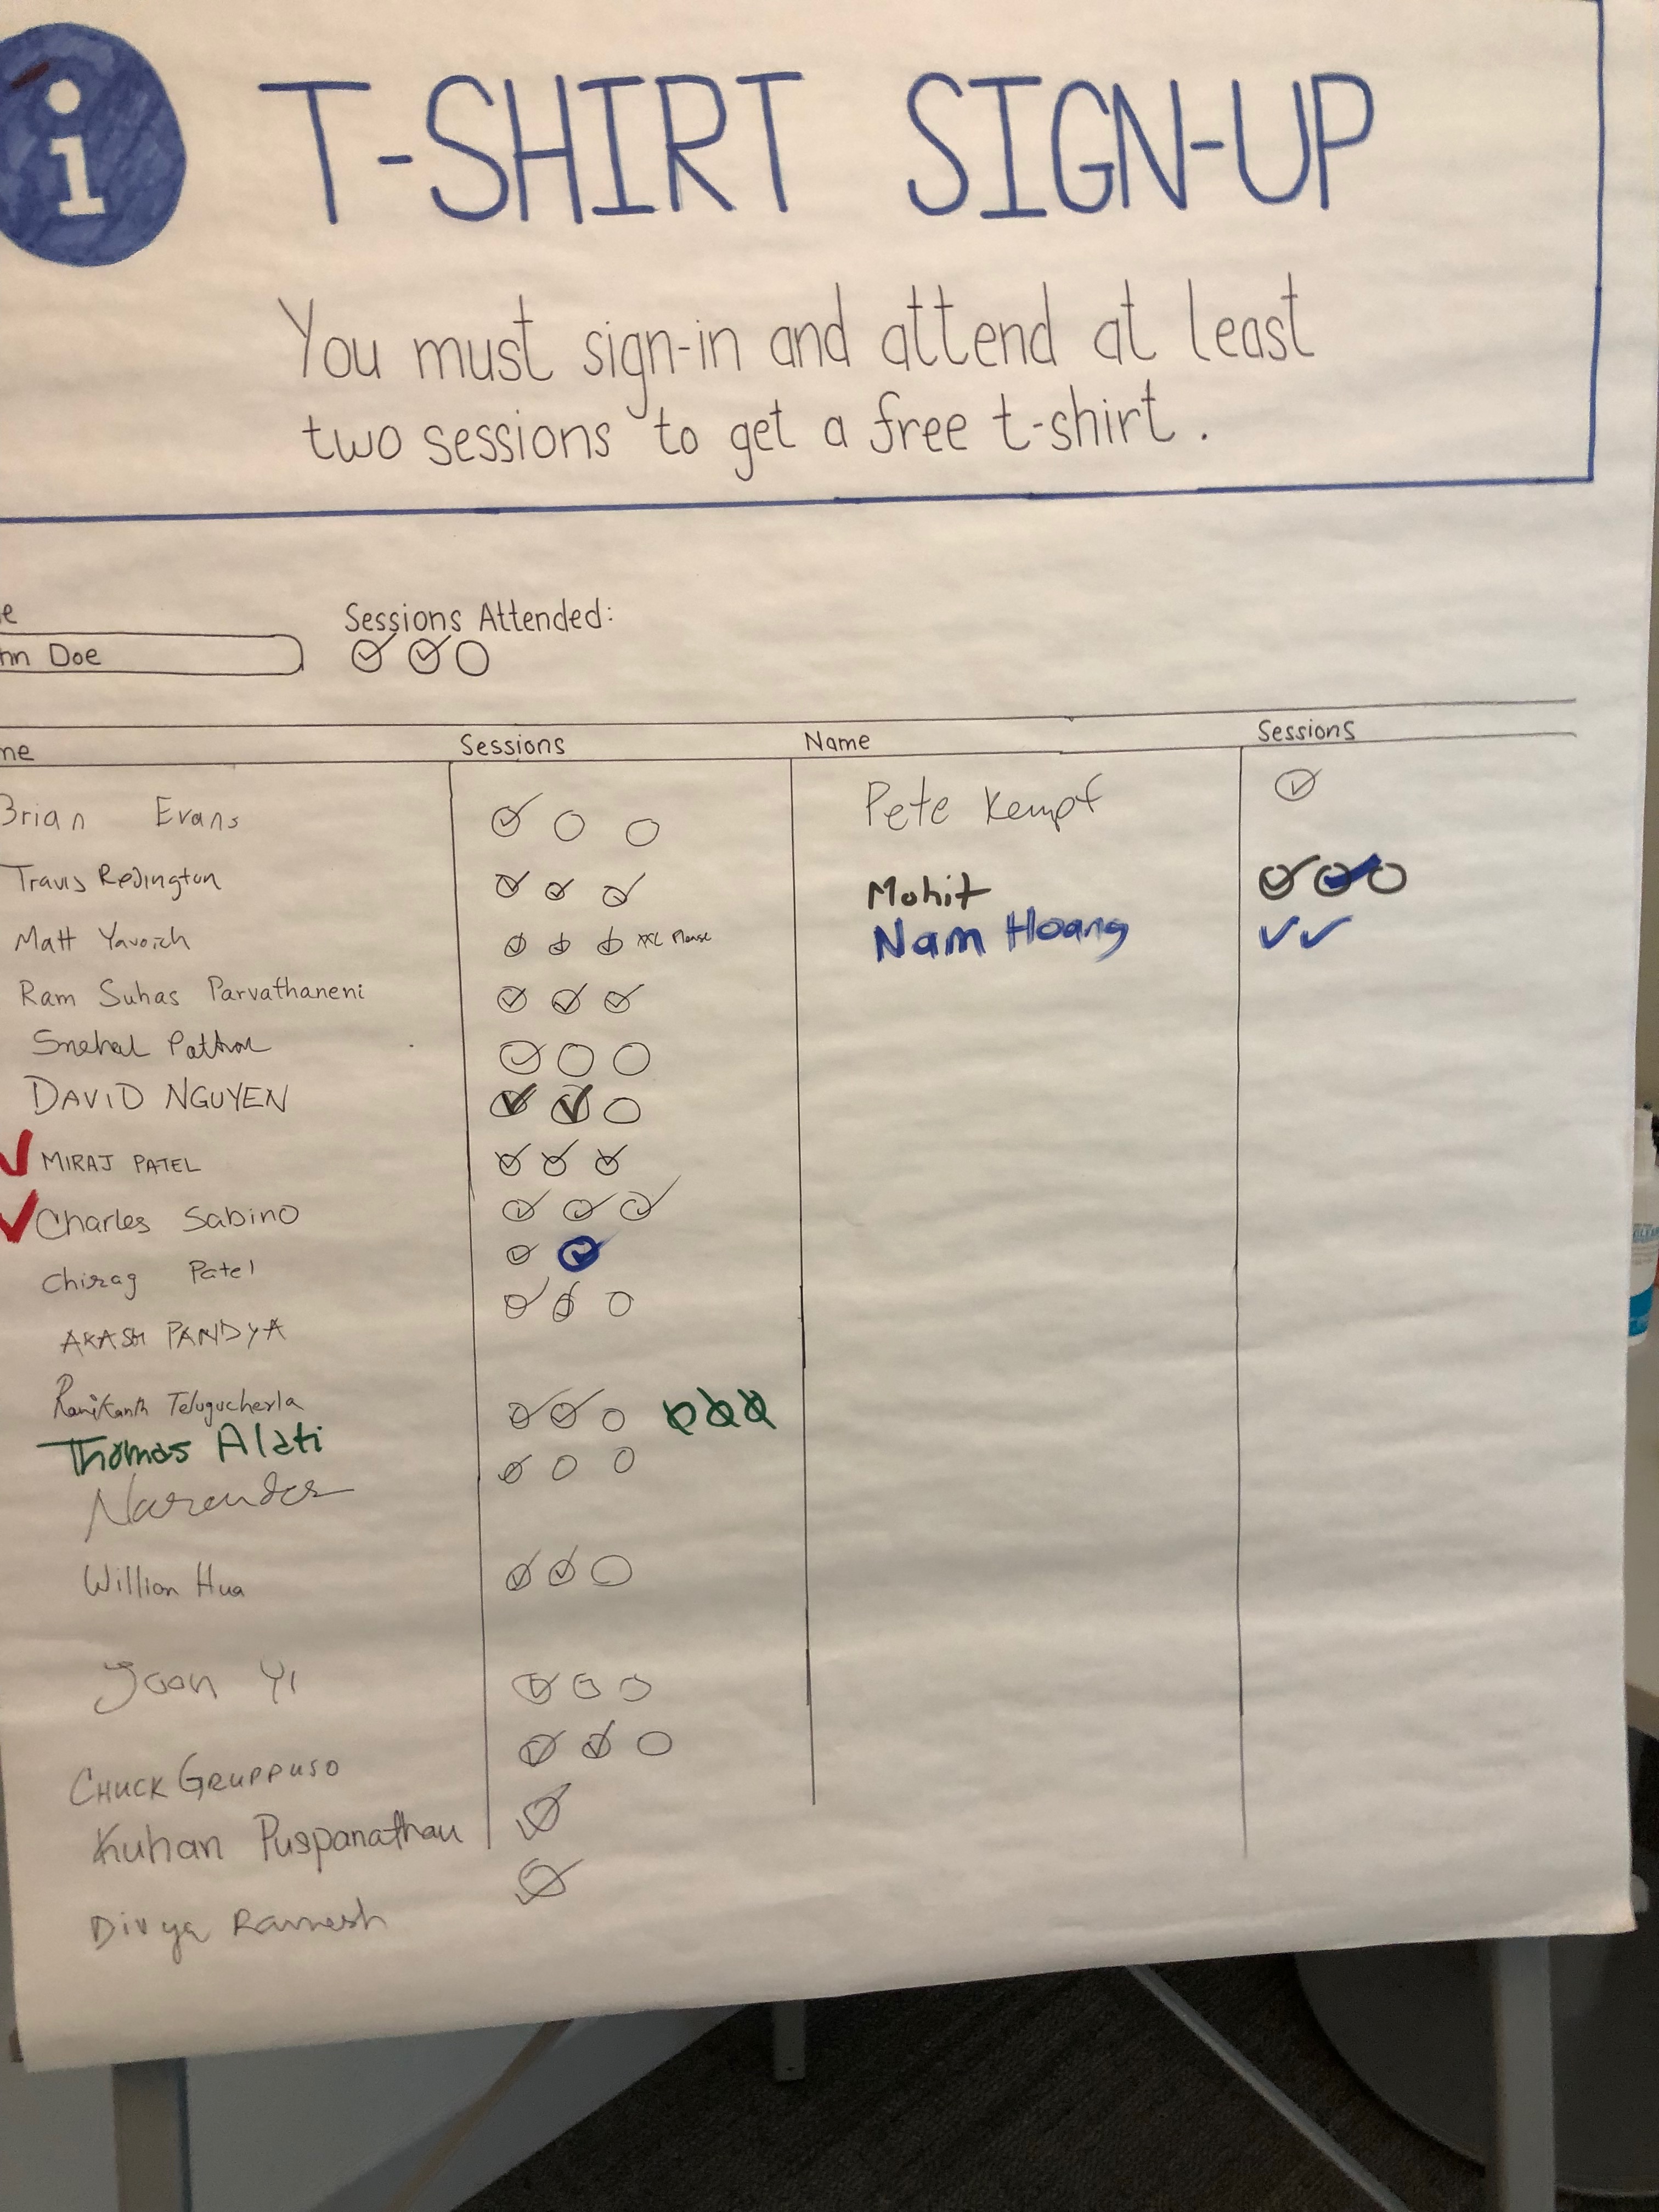 i
T-SHIRT SIGN-UP
You must sign-in and attend at least
two sessions to get a free t-shirt.
Sessions Attended:
Doe
Sessions Name Sessions
Brian Evans Pete Kempf
Travis Redington Mohit
Matt XXL Please Nam Hoang
Ram Suhas Parvathaneni
Snehal
DAVID NGUYEN
MIRAJ PATEL
Charles Sabino
Chirag Patel
AKASH PANDYA
Telugucherla
Thomas Alati
Narender
Hua
Joon Yi
CHUCK GRUPPUSO
Kuhan Puspanathan
Divya Ramesh